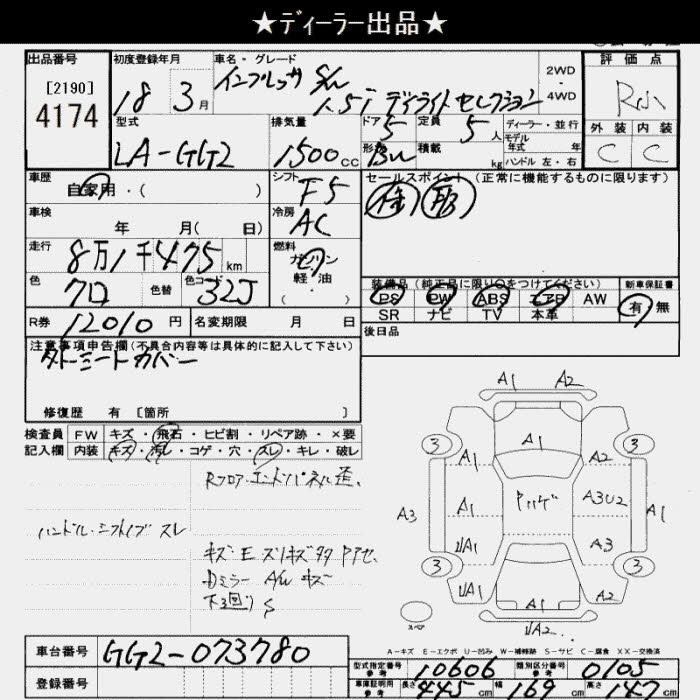 ★ディーラー出品★
出品番号 初度登録年月 車名・グレード 評価点
[2190]
4174
18 年 3月 インプレッサ S/W 2WD・4WD
1.5i デイライトセレクション
R小
型式 排気量 ドア 定員 ディーラー・並行
LA-GG2 1500cc 5 5人 モデル年式 年
形状 積載 kg ハンドル 左・右
外装 内装
C C
車歴 シフト セールスポイント (正常に機能するものに限ります)
自家用・( ) F5
車検 冷房
年 月( 日) AC
走行 燃料
8万1千475km ガソリン
軽・油
色 色替 色コード ( )
クロ 32J
装備品(純正品に限り○をつけてください) 新車保証書
PS PW ABS エアB AW 有・無
SR ナビ TV 本革
R券 12010円 名変期限 月 日
後日品
注意事項申告欄(不具合内容等は具体的に記入して下さい)
タトーミートカバー
修復歴 有 [箇所 ]
検査員 FW キズ・飛石・ヒビ割・リペア跡・×要
記入欄 内装 キズ・汚レ・コゲ・穴・スレ・キレ・破レ
Rフロア・エンドパネル歪、
ハンドル・シフトノブ スレ
キズ・E スリキズタタ Pアセ、
Dミラー A/W キズ
下3回り S
A1 A2
3 A1 3
A1 A2
A3 A1 Pハゲ A3U2 A1
UA1 A3
3 3
UA1 A1 A2
UA2
スペア
A-キズ E-エクボ U-凹み W-補修跡 S-サビ C-腐食 XX-交換済
車台番号 GG2-073780
型式指定番号 参考 10606 類別区分番号 参考 0105
登録番号
車庫証明用 参考 長さ 445cm 幅 169cm 高さ 147cm